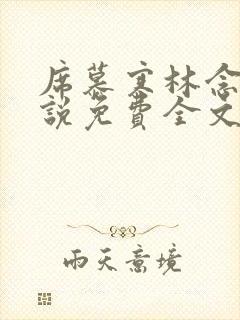 席慕寒林念
說免費全文
雨天意境